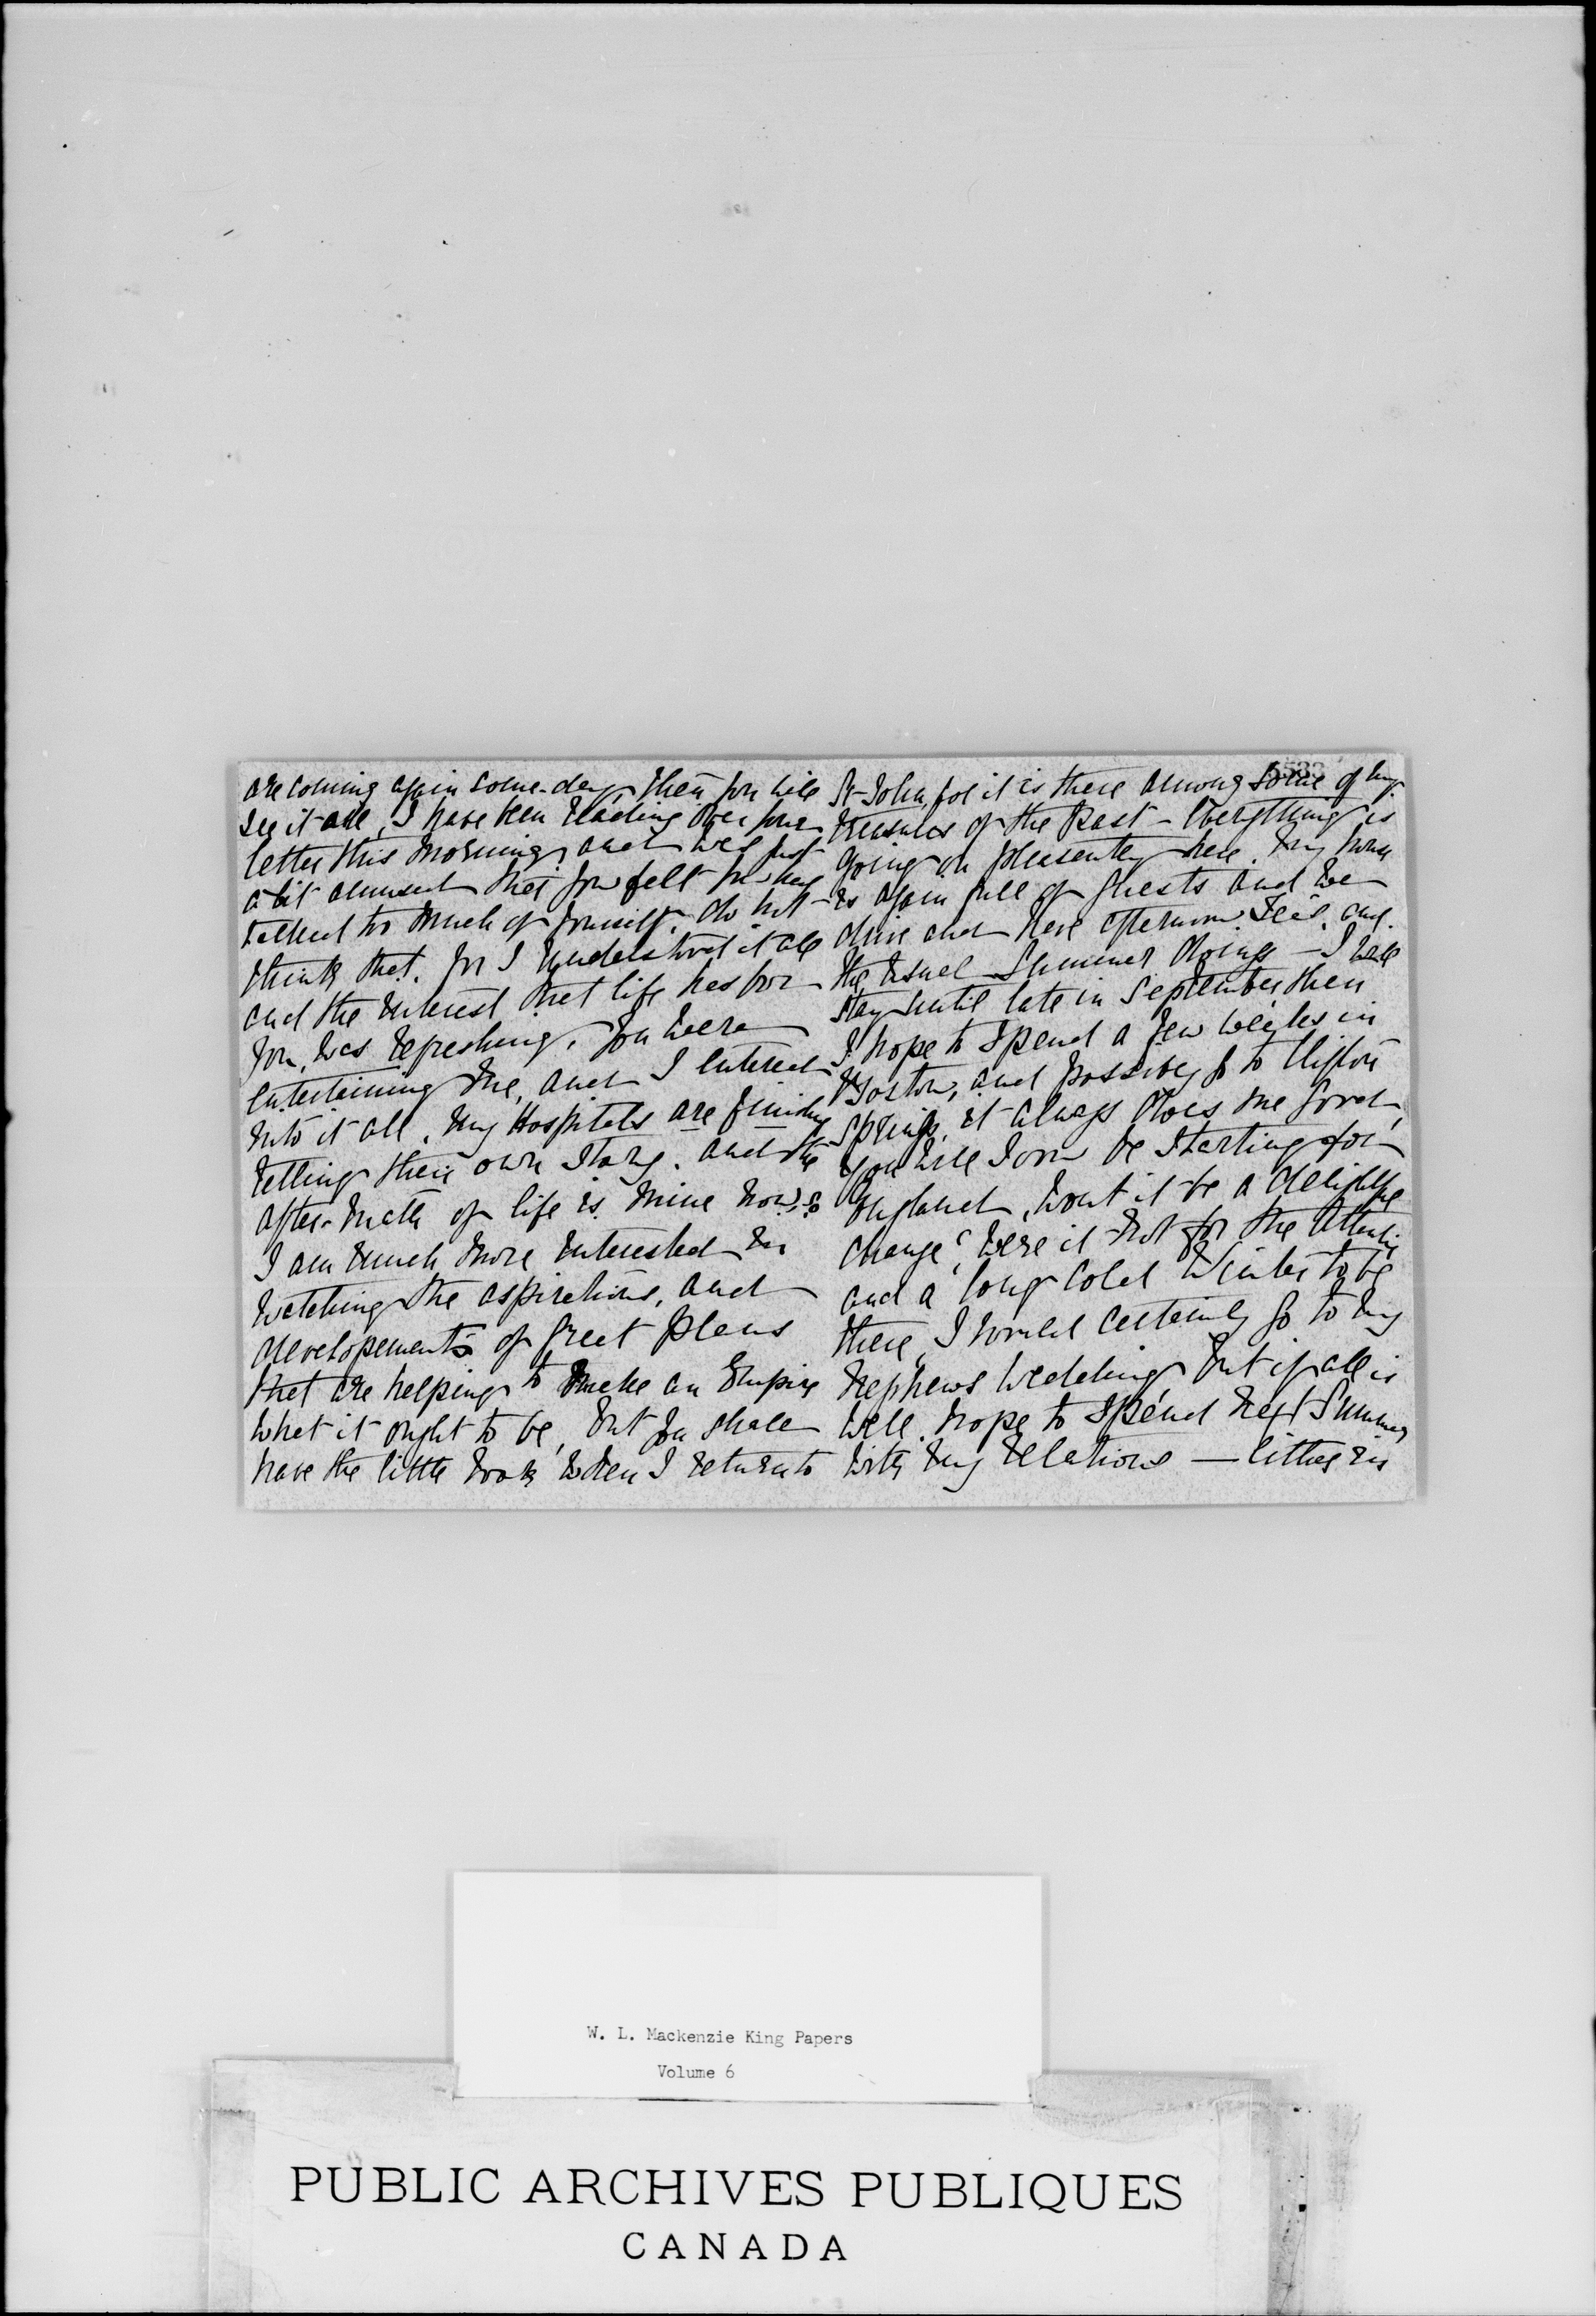 are coming again some-day, then you will
see it all, I have been reading over your
letter this morning, and was just
a bit amused that you felt you had
talked too much of yourself, do not
think that. for I understood it all
and the interest that life has for
you, was refreshing. You were
entertaining me, and I entered
into it all. My Hospitals are finished
telling their own story. and the
after-math of life is mine now, so
I am much more interested in
watching the aspirations, and
developements of great plans
that are helping to make an Empire
what it ought to be, but you shall
have the little book when I return to
St-John, for it is there among some of my
treasures of the Past - Everything is
going on pleasantly here. My house
is again full of guests and we
drive and have afternoon Teas. and
the usual Summer doings - I will
stay until late in September, then
I hope to spend a few weeks in
Boston, and possibly go to Clifton
Springs, it always does me good,
You will soon be starting for
England, wont it be a delightful
change, were it not for the
and a long cold Winter to be
there, I would certainly go to my
nephews wedding, but if all is
well, hope to spend next Summer
with my relations — either in
W. L. Mackenzie King Papers
Volume 6
PUBLIC ARCHIVES PUBLIQUES
CANADA